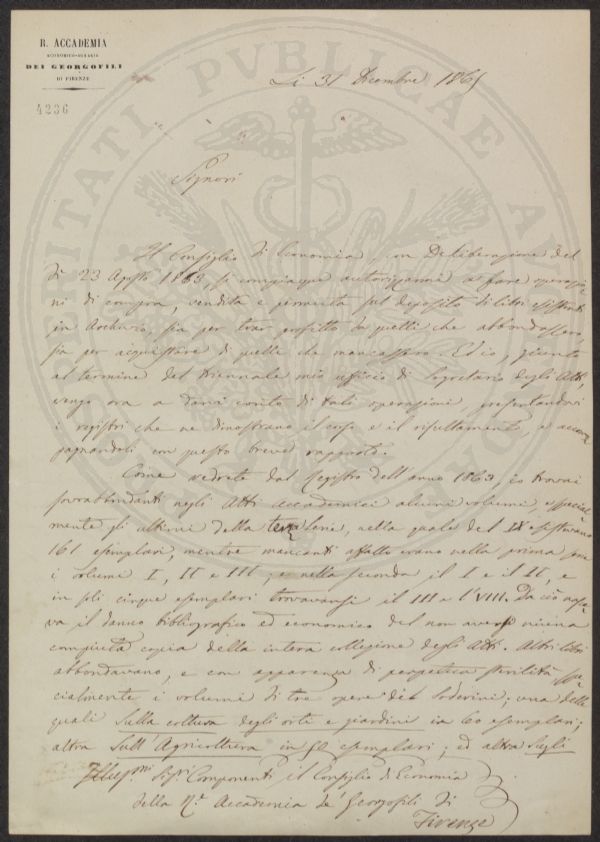 R. ACCADEMIA
ECONOMICO-AGRARIA
DEI GEORGOFILI
DI FIRENZE
4236
PROSPERITATI PUBLICAE AUGENDAE
Lì 31 Dicembre 1865
Signori
Il Consiglio di Economia, con Deliberazione del
dì 23 Agosto 1863, si compiacque autorizzarmi a fare operazio
ni di compra, vendita e permuta sul deposito di libri esistenti
in Archivio, sia per trar profitto da quelli che abbondassero,
sia per acquistare di quelli che mancassero. Ed io, giunto
al termine del triennale mio ufficio di Segretario degli Atti
vengo ora a darvi conto di tali operazioni presentandovi
i registri che ne dimostrano il corso e il resultamento, e accom
pagnandoli con questo breve rapporto.
Come vedrete dal Registro dell'anno 1863, io trovai
sovrabbondanti negli Atti accademici alcuni volumi, especial
mente gli ultimi della terza serie, nella quale del IX esistevano
161 esemplari, mentre mancanti affatto erano nella prima serie
i volumi I, II e III, e nella seconda il I e il II, e
in soli cinque esemplari trovavansi il III e l'VIII. Da ciò nasce
va il danno bibliografico ed economico del non avere veruna
compiuta copia della intera collezione degli Atti. Altri libri
abbondavano, e con apparenza di perpetua sterilità spe
cialmente i volumi di tre opere del Soderini; una delle
quali sulla coltura degli orti e giardini in 60 esemplari;
altra Sull'Agricoltura in 52 esemplari; ed altra Sugli
Illusmi Sigri Componenti il Consiglio di Economia
della Rle Accademia de' Georgofili di
Firenze